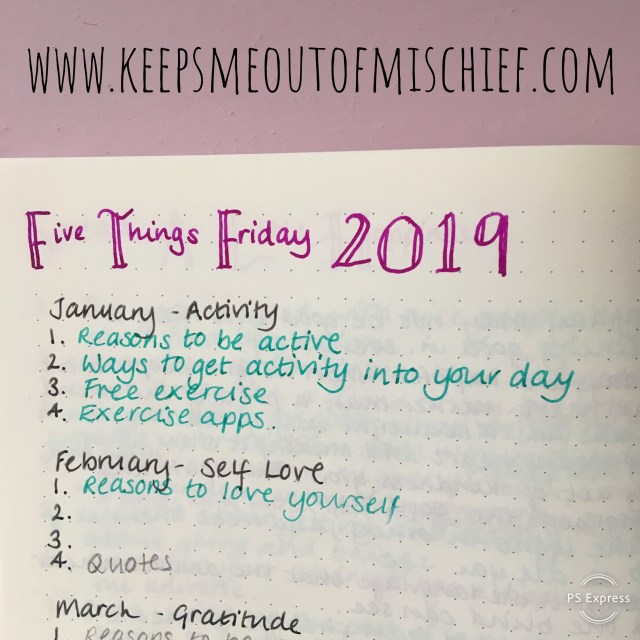 www.keepsmeoutofmischief.com
Five Things Friday 2019
January - Activity
1. Reasons to be active
2. Ways to get activity into your day
3. Free exercise
4. Exercise apps.
February - Self Love
1. Reasons to love yourself
2.
3.
4. Quotes
March - Gratitude
1. Reasons to be
PS Express